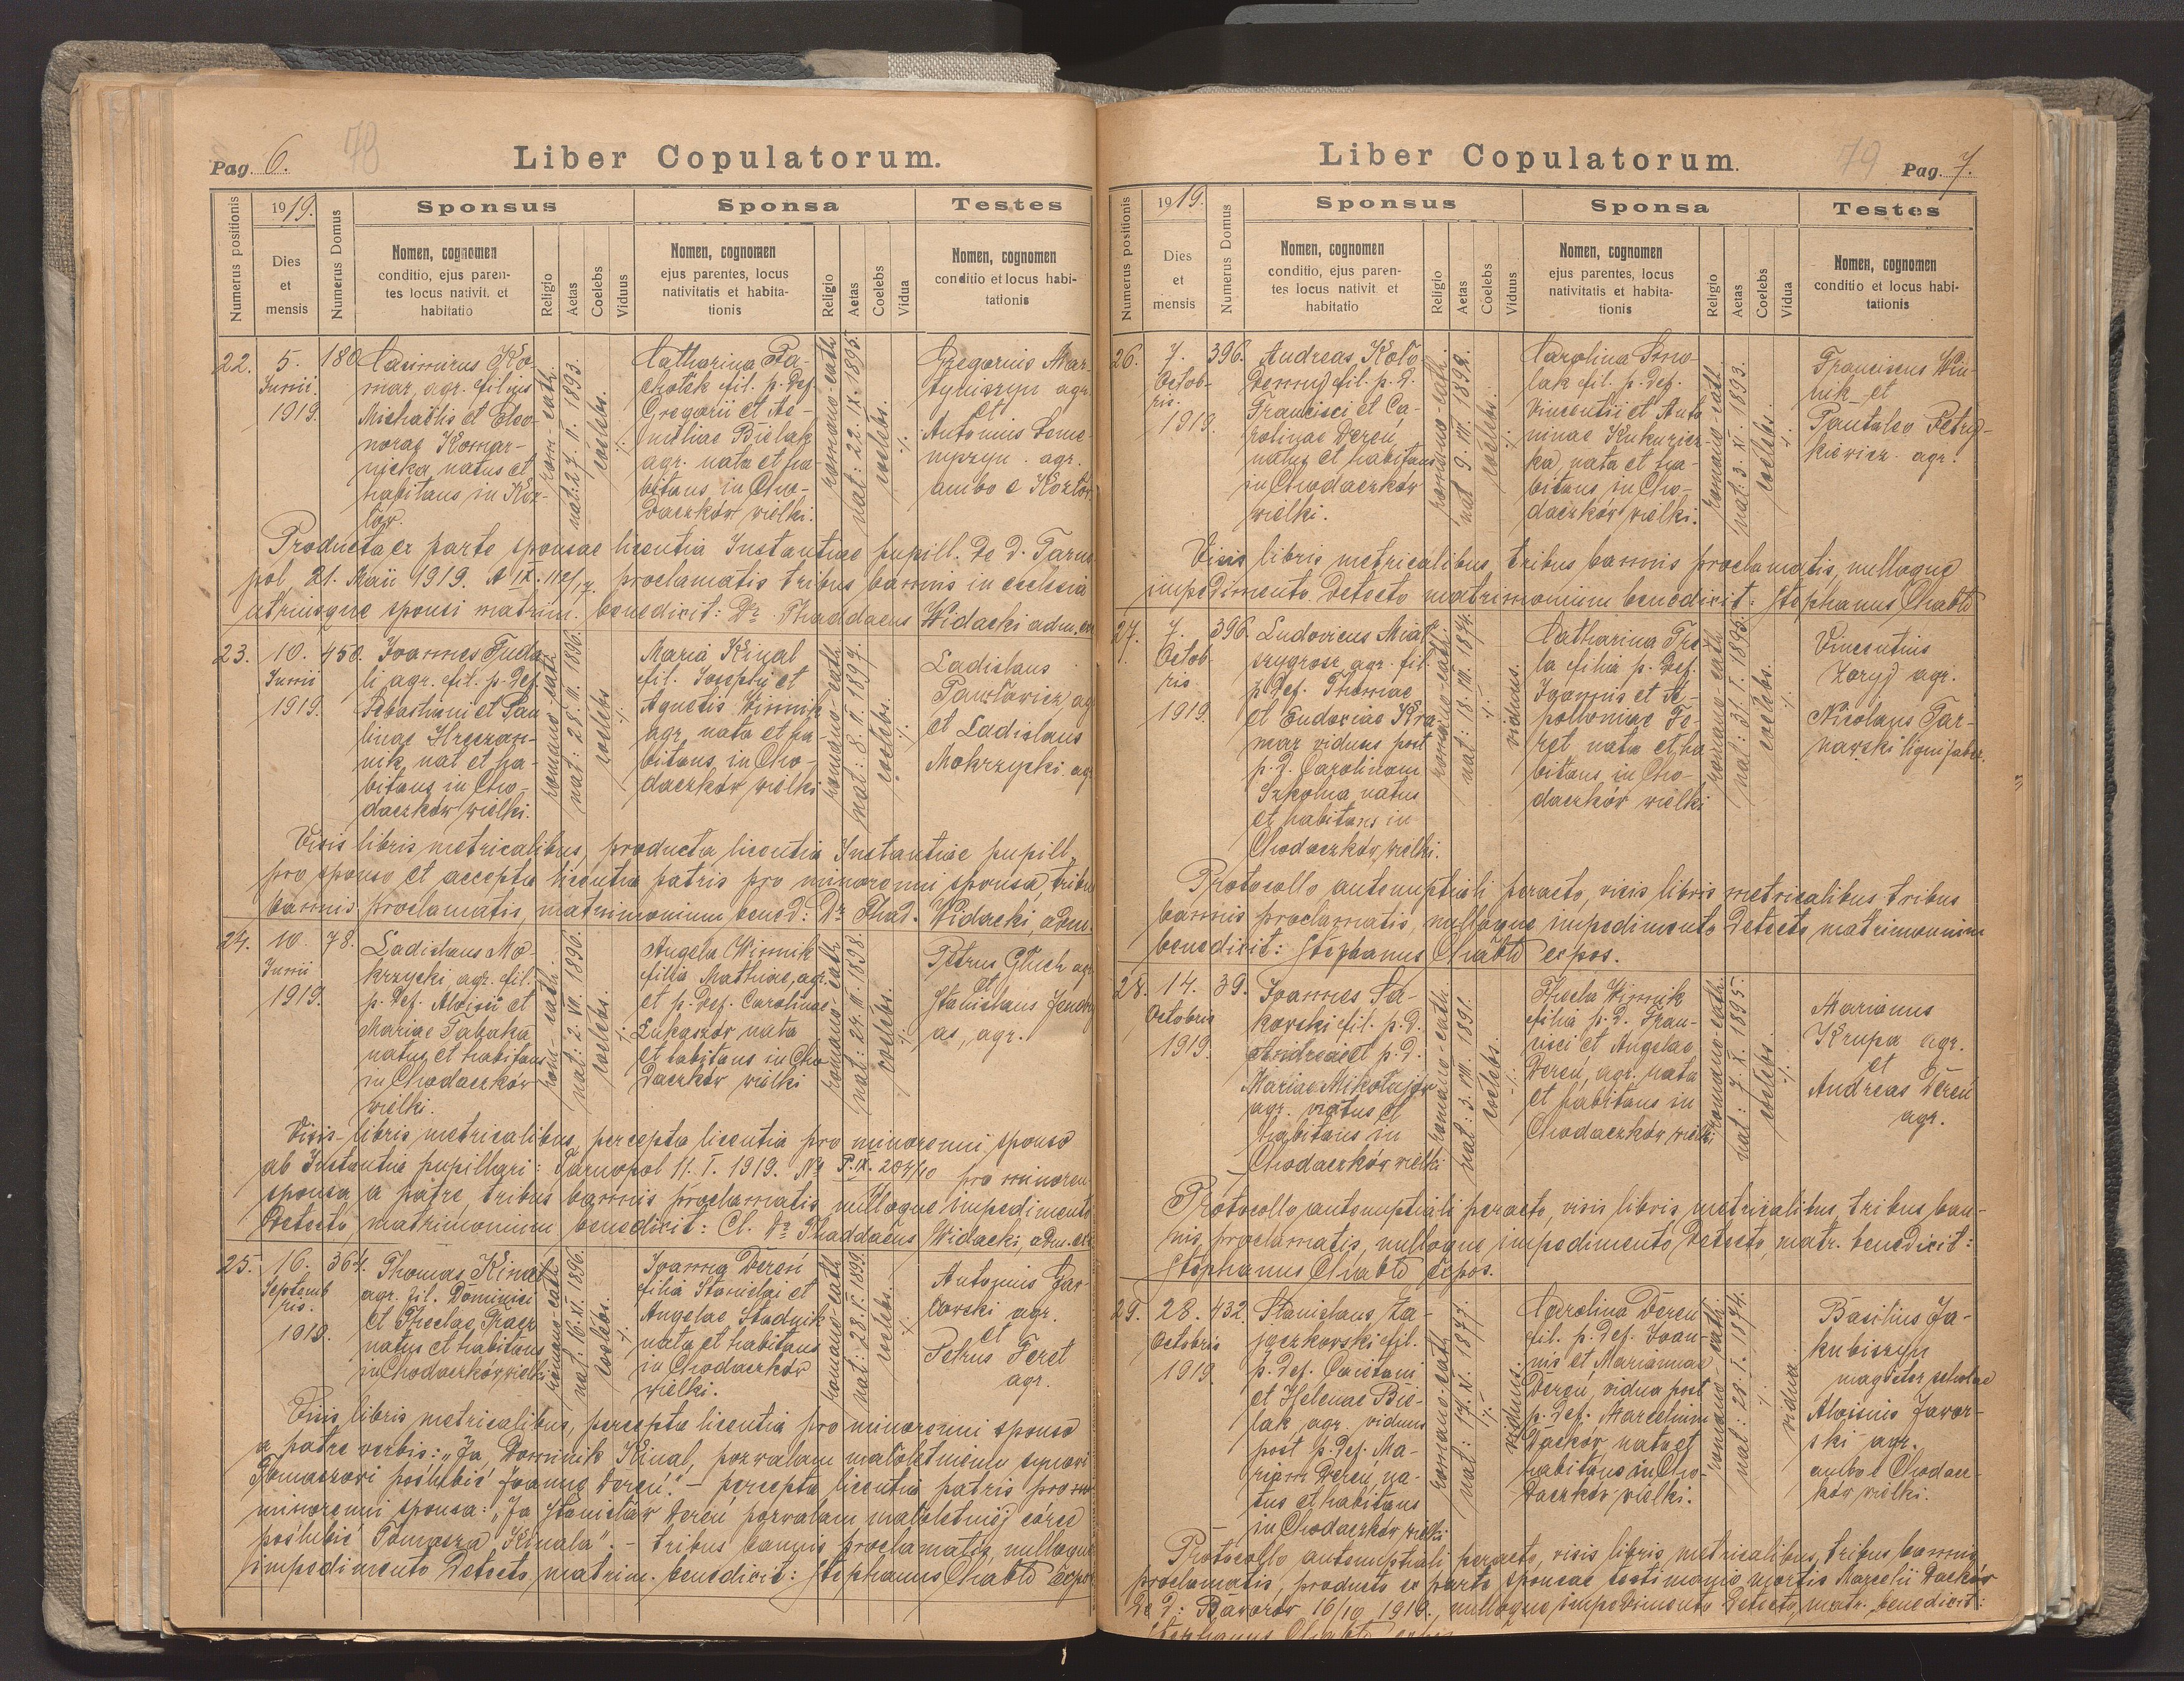 Pag. 6.
78
Liber Copulatorum.
Numerus positionis
1919.
Dies
et
mensis
Numerus Domus
Sponsus
Nomen, cognomen
conditio, ejus paren-
tes locus nativit. et
habitatio
Religio
Aetas
Coelebs
Viduus
Sponsa
Nomen, cognomen
ejus parentes, locus
nativitatis et habita-
tionis
Religio
Aetas
Coelebs
Vidua
Testes
Nomen, cognomen
conditio et locus habi-
tationis
22.
5.
Junii
1919.
180
Casimirus Ko-
mar, agr. filius
Michaëlis et Eleo-
norae Komar-
nicka, natus et
habitans in Koz-
łów.
rom.-cath.
nat: 27. II. 1893.
coelebs.
Catharina Pa-
chotek fil. p. def.
Gregorii et Ae-
miliae Bielak
agr. nata et ha-
bitans in Cho-
daczków wielki.
romano-cath.
nat: 22. IX. 1895.
coelebs.
Gregorius Mar-
tyniszyn agr.
et
Antonius Seme-
nyszyn agr.
ambo e Kozłów
Producta ex parte sponsae licentia Instantiae pupill. de d. Tarno-
pol 21. Maii 1919. A IX. proclamatis tribus bannis in ecclesia
utriusque sponsi matrim. benedixit: Dr. Thaddaeus Widacki adm.
23.
10.
Junii
1919.
450.
Joannes Fuda-
li agr. fil. p. def.
Sebastiani et Pau-
linae Hreczan-
nik, nat et ha-
bitans in Cho-
daczków wielki.
romano-cath.
nat: 28. III. 1896.
coelebs
Maria Kinal
fil. Josephi et
Agnetis Winnik
agr. nata et ha-
bitans in Cho-
daczków wielki
romano-cath.
nat: 8. II. 1897.
coelebs.
Ladislaus
Pawłowicz agr
et Ladislaus
Mokrzycki agr
Visis libris metricalibus, producta licentia Instantiae pupill.
pro sponso et accepta licentia patris pro minorenni sponsa, tribus
bannis proclamatis, matrimonium bened: Dr. Thad. Widacki, adm.
24.
10.
Junii
1919.
78.
Ladislaus Mo-
krzycki, agr. fil.
p. def. Aloisii et
Mariae Tabaka
natus et habitans
in Chodaczków
wielki.
rom.-cath.
nat: 2. VI. 1896.
coelebs.
Angela Winnik
filia Mathiae, agr.
et p. def. Carolinae
Łukaszów nata
et habitans in Cho
daczków wielki
romano-cath.
nat: 24. III. 1898.
coelebs.
Petrus Głuch agr
et
Stanislaus Jendry
as, agr.
Visis libris metricalibus, percepta licentia pro minorenni sponso
ab Instantia pupillari: Tarnopol 11. I. 1919. No P. IX. 204/10 pro minoren
sponsa a patre, tribus bannis proclamatis nulloque impedimento
detecto, matrimonium benedixit: Cl. Dr. Thaddaeus Widacki, adm.
25.
16.
Septemb
ris.
1919.
364.
Thomas Kinal
agr. fil. Dominici
et Theclae Tracz
natus et habitans
in Chodaczków wielki
romano-cath.
nat: 16. XI. 1896.
coelebs.
Joanna Dereń
filia Stanislai et
Angelae Studnik
nata et habitans
in Chodaczków
wielki.
romano-cath.
nat: 28. I. 1899.
coelebs.
Antonius Gar-
et
Petrus Feret
agr.
Visis libris metricalibus, percepta licentia pro minorenni sponso
a patre verbis: „Ja, Dominik Kinal, pozwalam małoletniemu synowi
Tomaszowi poślubić Joannę Dereń." – percepta licentia patris pro
minorenni sponsa: „Ja Stanisław Dereń pozwalam małoletniej córce
poślubić Tomasza Kinala". – tribus bannis proclamatis, nulloque
impedimento detecto, matrim. benedixit: Stephanus Chabło expos
Liber Copulatorum.
79
Pag. 7.
Numerus positionis
1919.
Dies
et
mensis
Numerus Domus
Sponsus
Nomen, cognomen
conditio, ejus paren-
tes locus nativit. et
habitatio
Religio
Aetas
Coelebs
Viduus
Sponsa
Nomen, cognomen
ejus parentes, locus
nativitatis et habita-
tionis
Religio
Aetas
Coelebs
Vidua
Testes
Nomen, cognomen
conditio et locus habi-
tationis
26.
7.
Octob-
ris.
1919.
396.
Andreas Koło
dennyj fil. p. d.
Francisci et Ca-
rolinae Dereń,
natus et habitans
in Chodaczków
wielki.
romano-cath.
coelebs.
Carolina Smo-
lak fil. p. def.
Vincentii et Anto
ninae Kukurycz-
ka, nata et ha-
bitans in Cho-
daczków wielki.
romano-cath.
nat: 3. XI. 1893.
coelebs.
Franciscus Win-
nik et
Pantaleo Petry-
kiewicz agr.
Visis libris metricalibus, tribus bannis proclamatis, nulloque
impedimento detecto matrimonium benedixit: Stephanus Chabło
27.
7.
Octob
ris
1919.
396.
Ludovicus Miat-
szygrosz, agr. fil.
p. def. Thomae
et Eudoxiae Kra-
mar viduus post
p. d. Carolinam
Szkolna, natus
et habitans in
Chodaczków wielki.
romano-cath.
nat: 18. VII. 1874.
viduus.
Catharina Tre-
la filia p. def.
Joannis et A-
polloniae Fe-
ret nata et ha
bitans in Cho-
daczków wielki
romano-cath.
nat: 31. I. 1895.
coelebs.
Vincentius
Zoryj agr.
Nicolaus Tar-
nawski lignifaber.
Protocollo antenuptiali peracto, visis libris metricalibus tribus
bannis proclamatis, nulloque impedimento detecto matrimonium
benedixit: Stephanus Chabło expos.
28.
14.
Octobris
1919.
39.
Joannes Sa-
kowski fil. p. d.
Andreae et p. d.
Mariae Mikołajów
agr. natus et
habitans in
Chodaczków wielki
romano-cath.
nat: 3. VIII. 1891.
coelebs.
Thecla Winnik
filia p. d. Fran-
cisci et Angelae
Dereń, agr. nata
et habitans in
Chodaczków wielki
romano-cath.
nat: 7. X. 1895.
coelebs.
Marianus
Krupa agr.
et
Andreas Dereń
agr.
Protocollo antenuptiali peracto, visis libris metricalibus, tribus ban-
nis proclamatis, nulloque impedimento detecto, matr. benedixit:
Stephanus Chabło expos.
29.
28.
Octobris
1919
432.
Stanislaus Za-
jączkowski fil.
p. def. Caietani
et Helenae Bie-
lak, agr. viduus
post p. def. Ma-
riam Dereń, na-
tus et habitans
in Chodaczków wielki
romano-cath.
nat: 17. XI. 1877.
viduus.
Carolina Dereń
fil. p. def. Joan-
nis et Mariannae
Dereń, vidua post
p. def. Marcelium
Daćków, nata et
habitans in Cho-
daczków wielki.
romano-cath.
nat: 28. I. 1874.
vidua
Basilius Ja-
kubiszyn
magister scholae
Aloisius Jawor-
ski agr.
ambo e Chodacz-
ków wielki.
Protocollo antenuptiali peracto, visis libris metricalibus, tribus bannis
proclamatis, producto ex parte sponsae testimonio mortis Marcelii Daćków
de d: Baworów 16/10 1919., nulloque impedimento detecto, matr. benedixit:
Stephanus Chabło